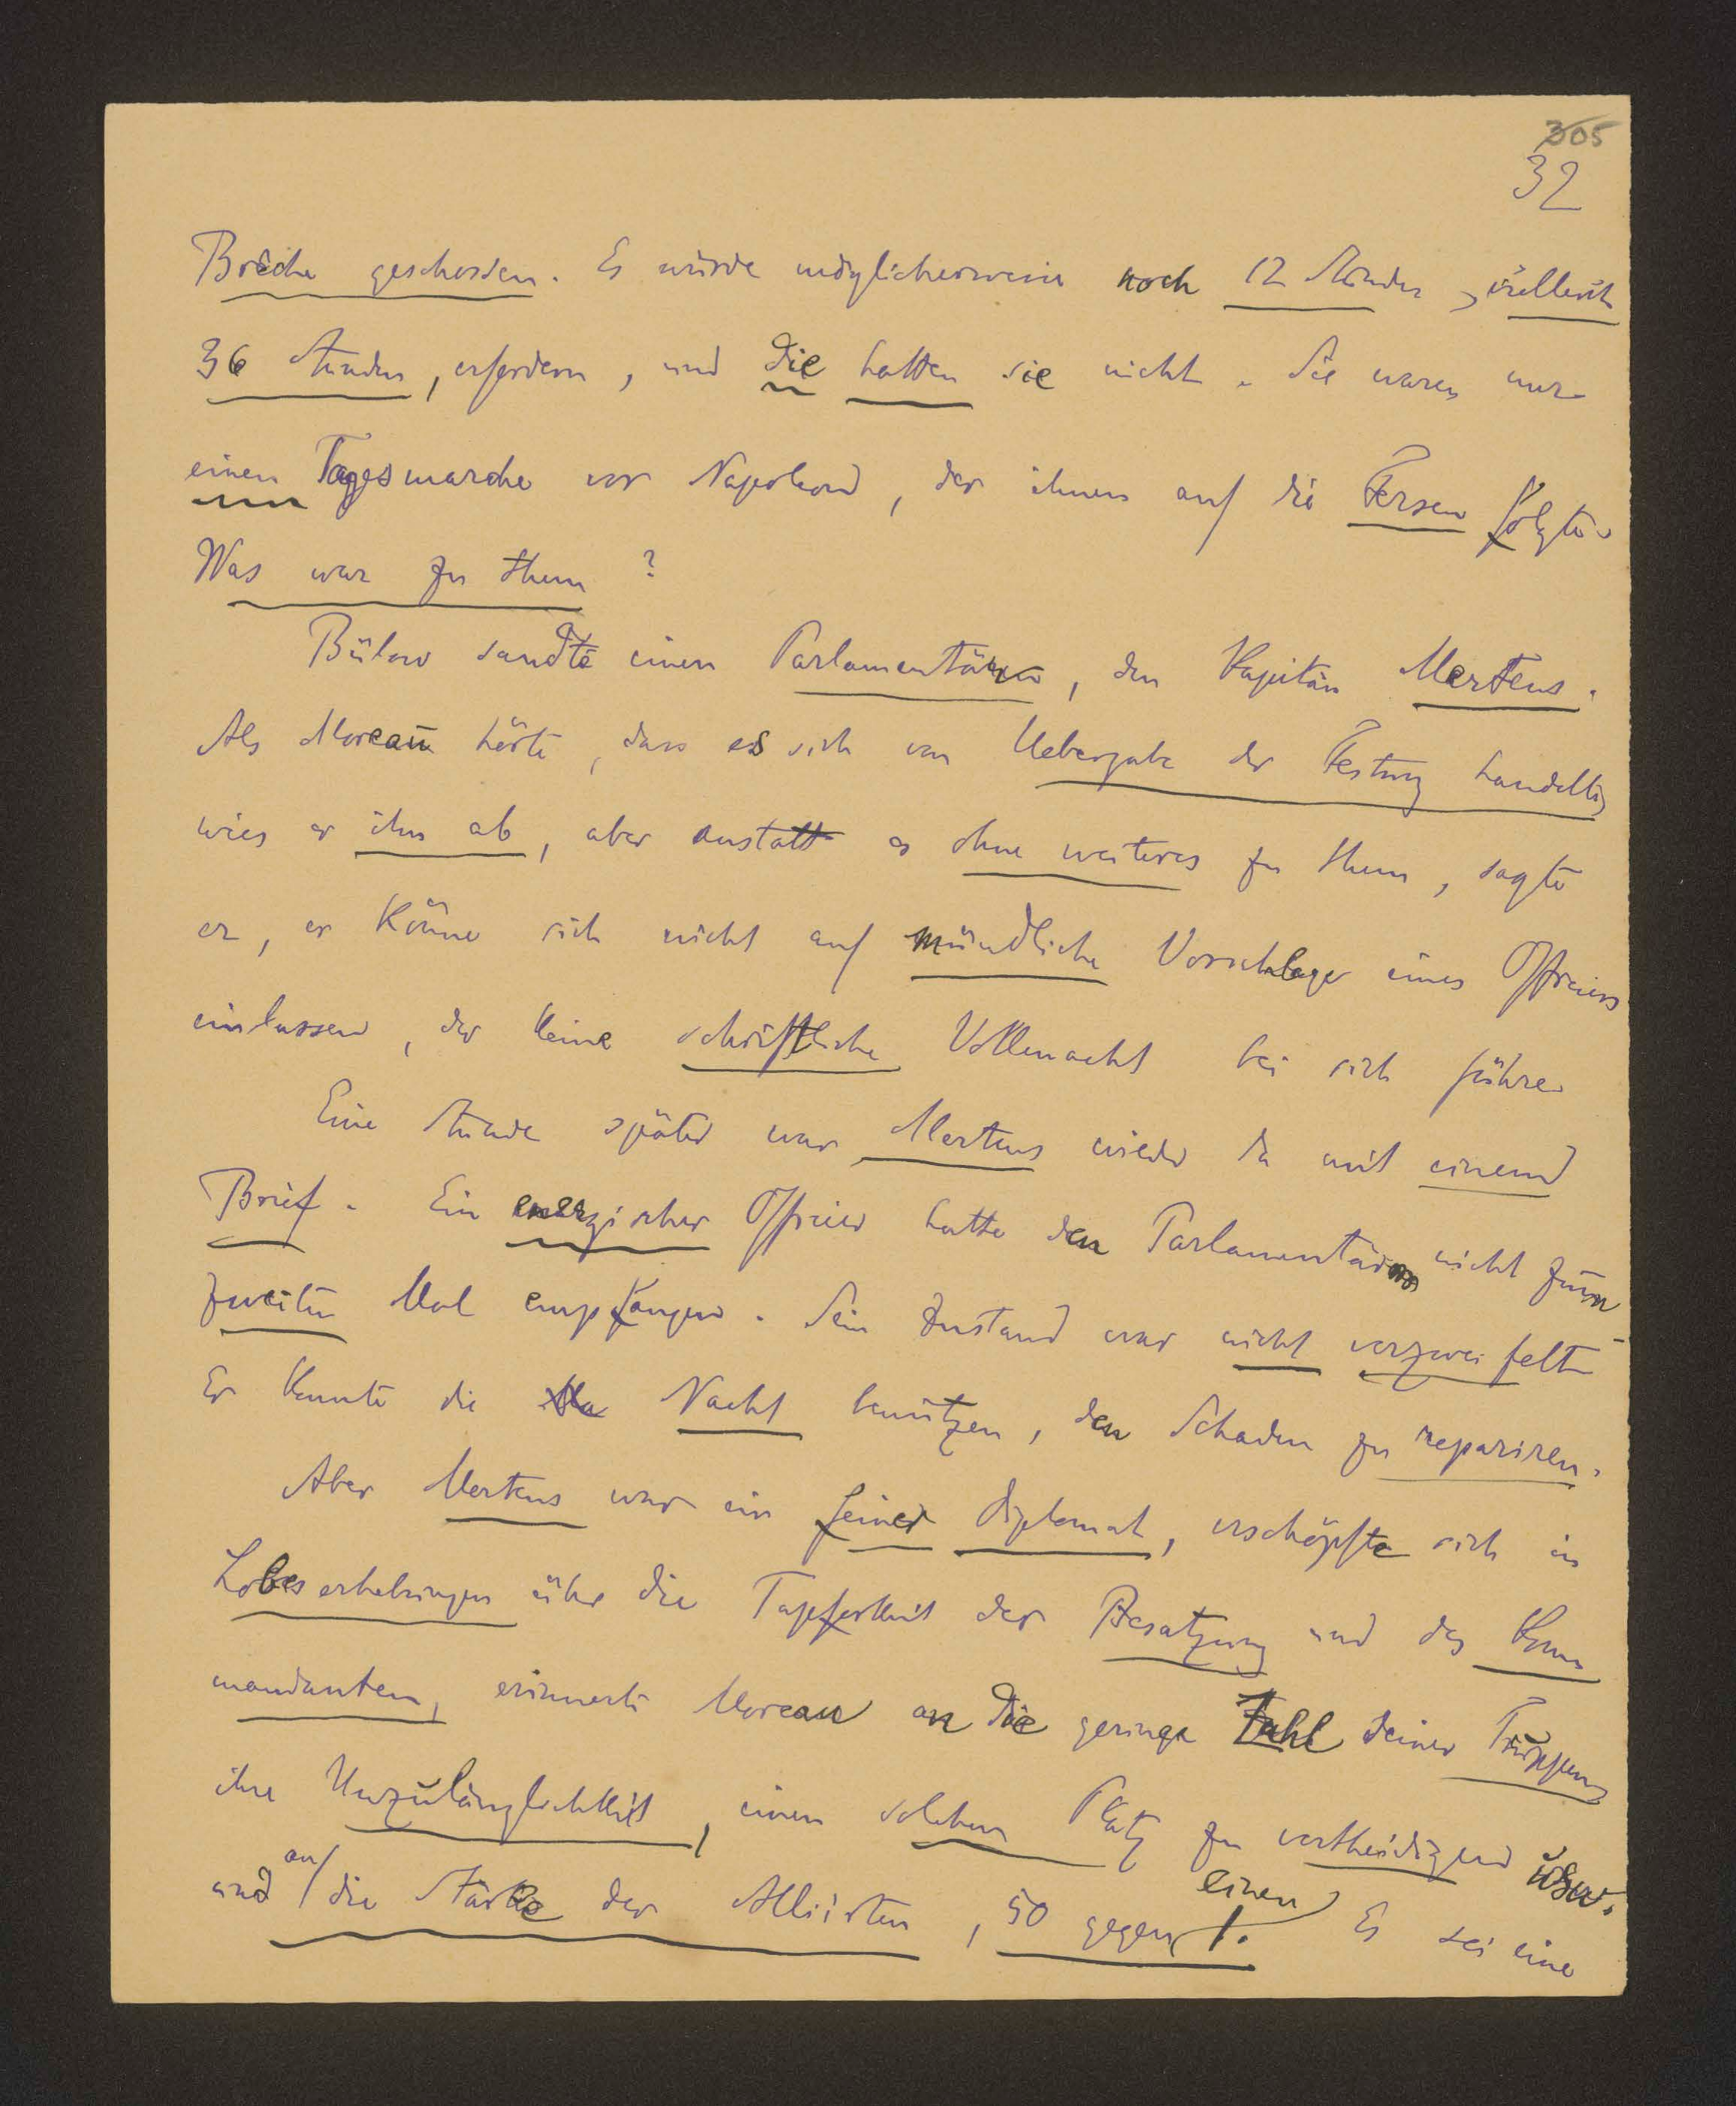 305
32
Brèche geschossen. Es würde möglicherweise noch 12 Stunden, vielleicht
36 Stunden, erfordern, und die hatten sie nicht. Sie waren nur
einen Tagesmarche vor Napoleon, der ihnen auf die Fersen folgte.
Was war zu thun?
Bülow sandte einen Parlamentären, den Kapitän Mertens.
Als Moreau hörte, dass es sich um Uebergabe der Festung handelte,
wies er ihn ab, aber anstatt es ohne weiteres zu thun, sagte
er, er könne sich nicht auf mündliche Vorschlage eines Offiziers
einlassen, der keine schriftliche Vollmacht bei sich führe.
Eine Stunde später war Mertens wieder da mit einem
Brief. Ein energischer Offizier hatte den Parlamentären nicht zum
zweiten Mal empfangen. Sein Zustand war nicht verzweifelt.
Er konnte die Nacht benützen, den Schaden zu repariren.
Aber Mertens war ein feiner Diplomat, erschöpfte sich in
Lobeserhebungen über die Tapferkeit der Besatzung und des Kom
mandanten, erinnerte Moreau an die geringe Zahl seiner Truppen,
ihre Unzulänglichkeit, einen solchen Platz zu vertheidigen usw.
und an die Stärke der Alliirten, 50 gegen einen 1. Es sei eine